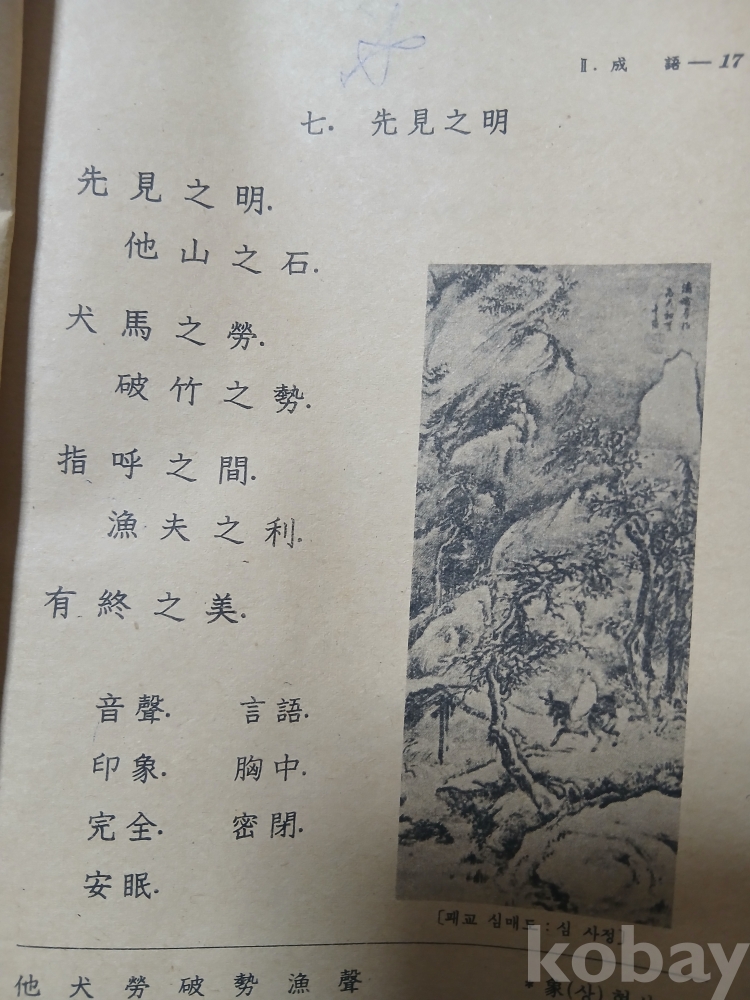 Ⅱ. 成 語 — 17
七. 先見之明
先見之明.
他山之石.
犬馬之勞.
破竹之勢.
指呼之間.
漁夫之利.
有終之美.
音聲. 言語.
印象. 胸中.
完全. 密閉.
安眠.
[패교 심매도 : 심 사정]
他犬勞破勢漁聲
* 象(상)
kobay